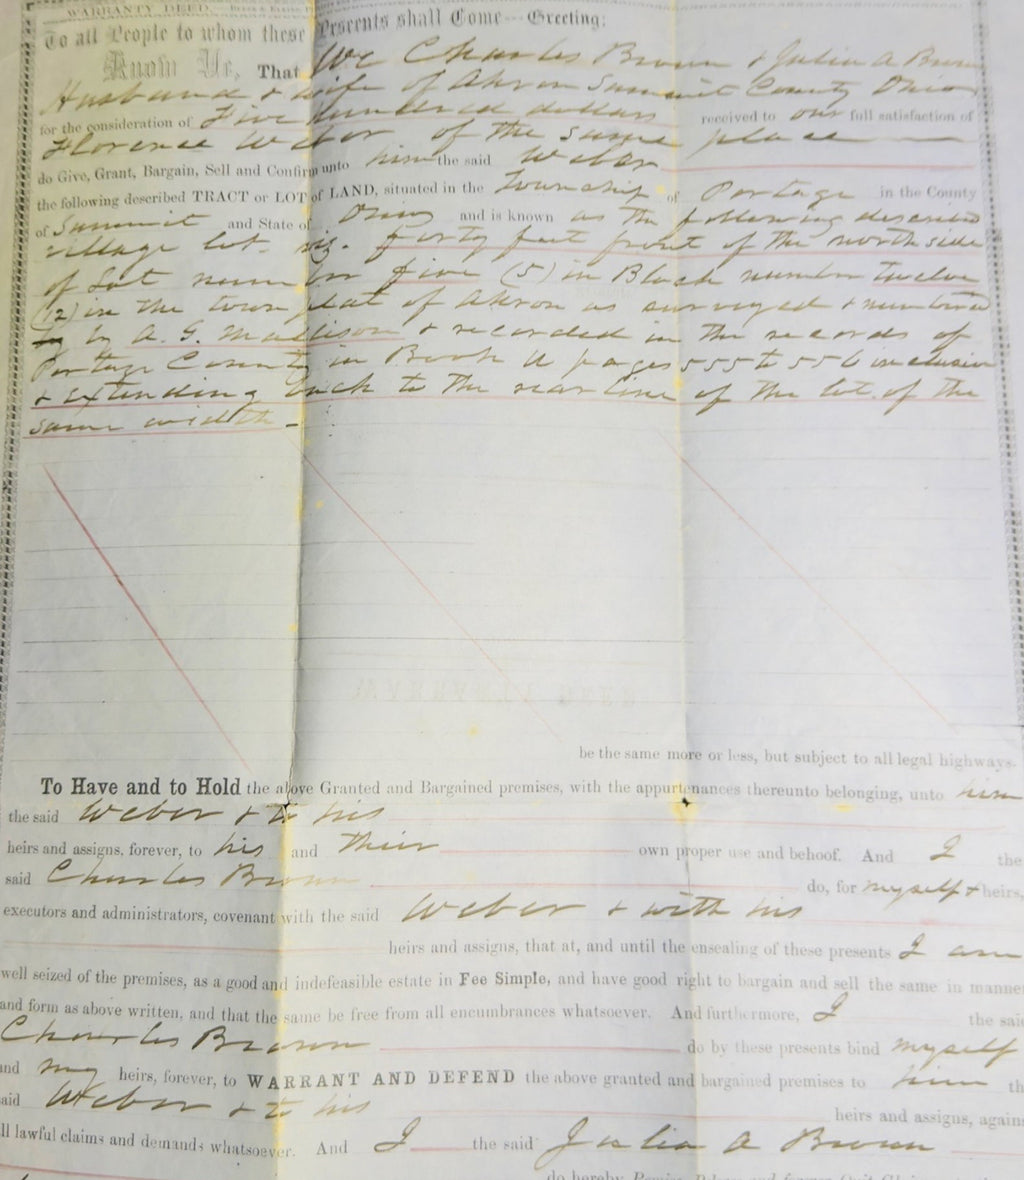 WARRANTY DEED.
To all People to whom these Presents shall Come--Greeting:
Know Ye, That We Charles Brown & Julia A Brown
Husband & wife of Akron Summit County Ohio
for the consideration of Five hundred dollars received to our full satisfaction of
Florence Weber of the same place
do Give, Grant, Bargain, Sell and Confirm unto him the said Weber
the following described TRACT or LOT of LAND, situated in the Township of Portage in the County
of Summit and State of Ohio and is known as the following described
village lot. viz. Forty feet front of the north side
of Lot number five (5) in Block number twelve
(12) in the town plat of Akron as surveyed & numbered
by A. G. & recorded in the records of
Portage County in Book U pages 555 to 556 inclusive
& extending back to the rear line of the lot. of the
same width -
WARRANTY DEED
be the same more or less, but subject to all legal highways.
To Have and to Hold the above Granted and Bargained premises, with the appurtenances thereunto belonging, unto him
the said Weber & to his
heirs and assigns, forever, to his and their own proper use and behoof. And I the
said Charles Brown do, for myself & heirs,
executors and administrators, covenant with the said Weber & with his
heirs and assigns, that at, and until the ensealing of these presents I am
well seized of the premises, as a good and indefeasible estate in Fee Simple, and have good right to bargain and sell the same in manner
and form as above written, and that the same be free from all encumbrances whatsoever. And furthermore, I the said
Charles Brown do by these presents bind myself
and my heirs, forever, to WARRANT AND DEFEND the above granted and bargained premises to him th
aid Weber & to his heirs and assigns, agains
ll lawful claims and demands whatsoever. And I the said Julia A Brown
do hereby Remise, Release and forever Quit Claim